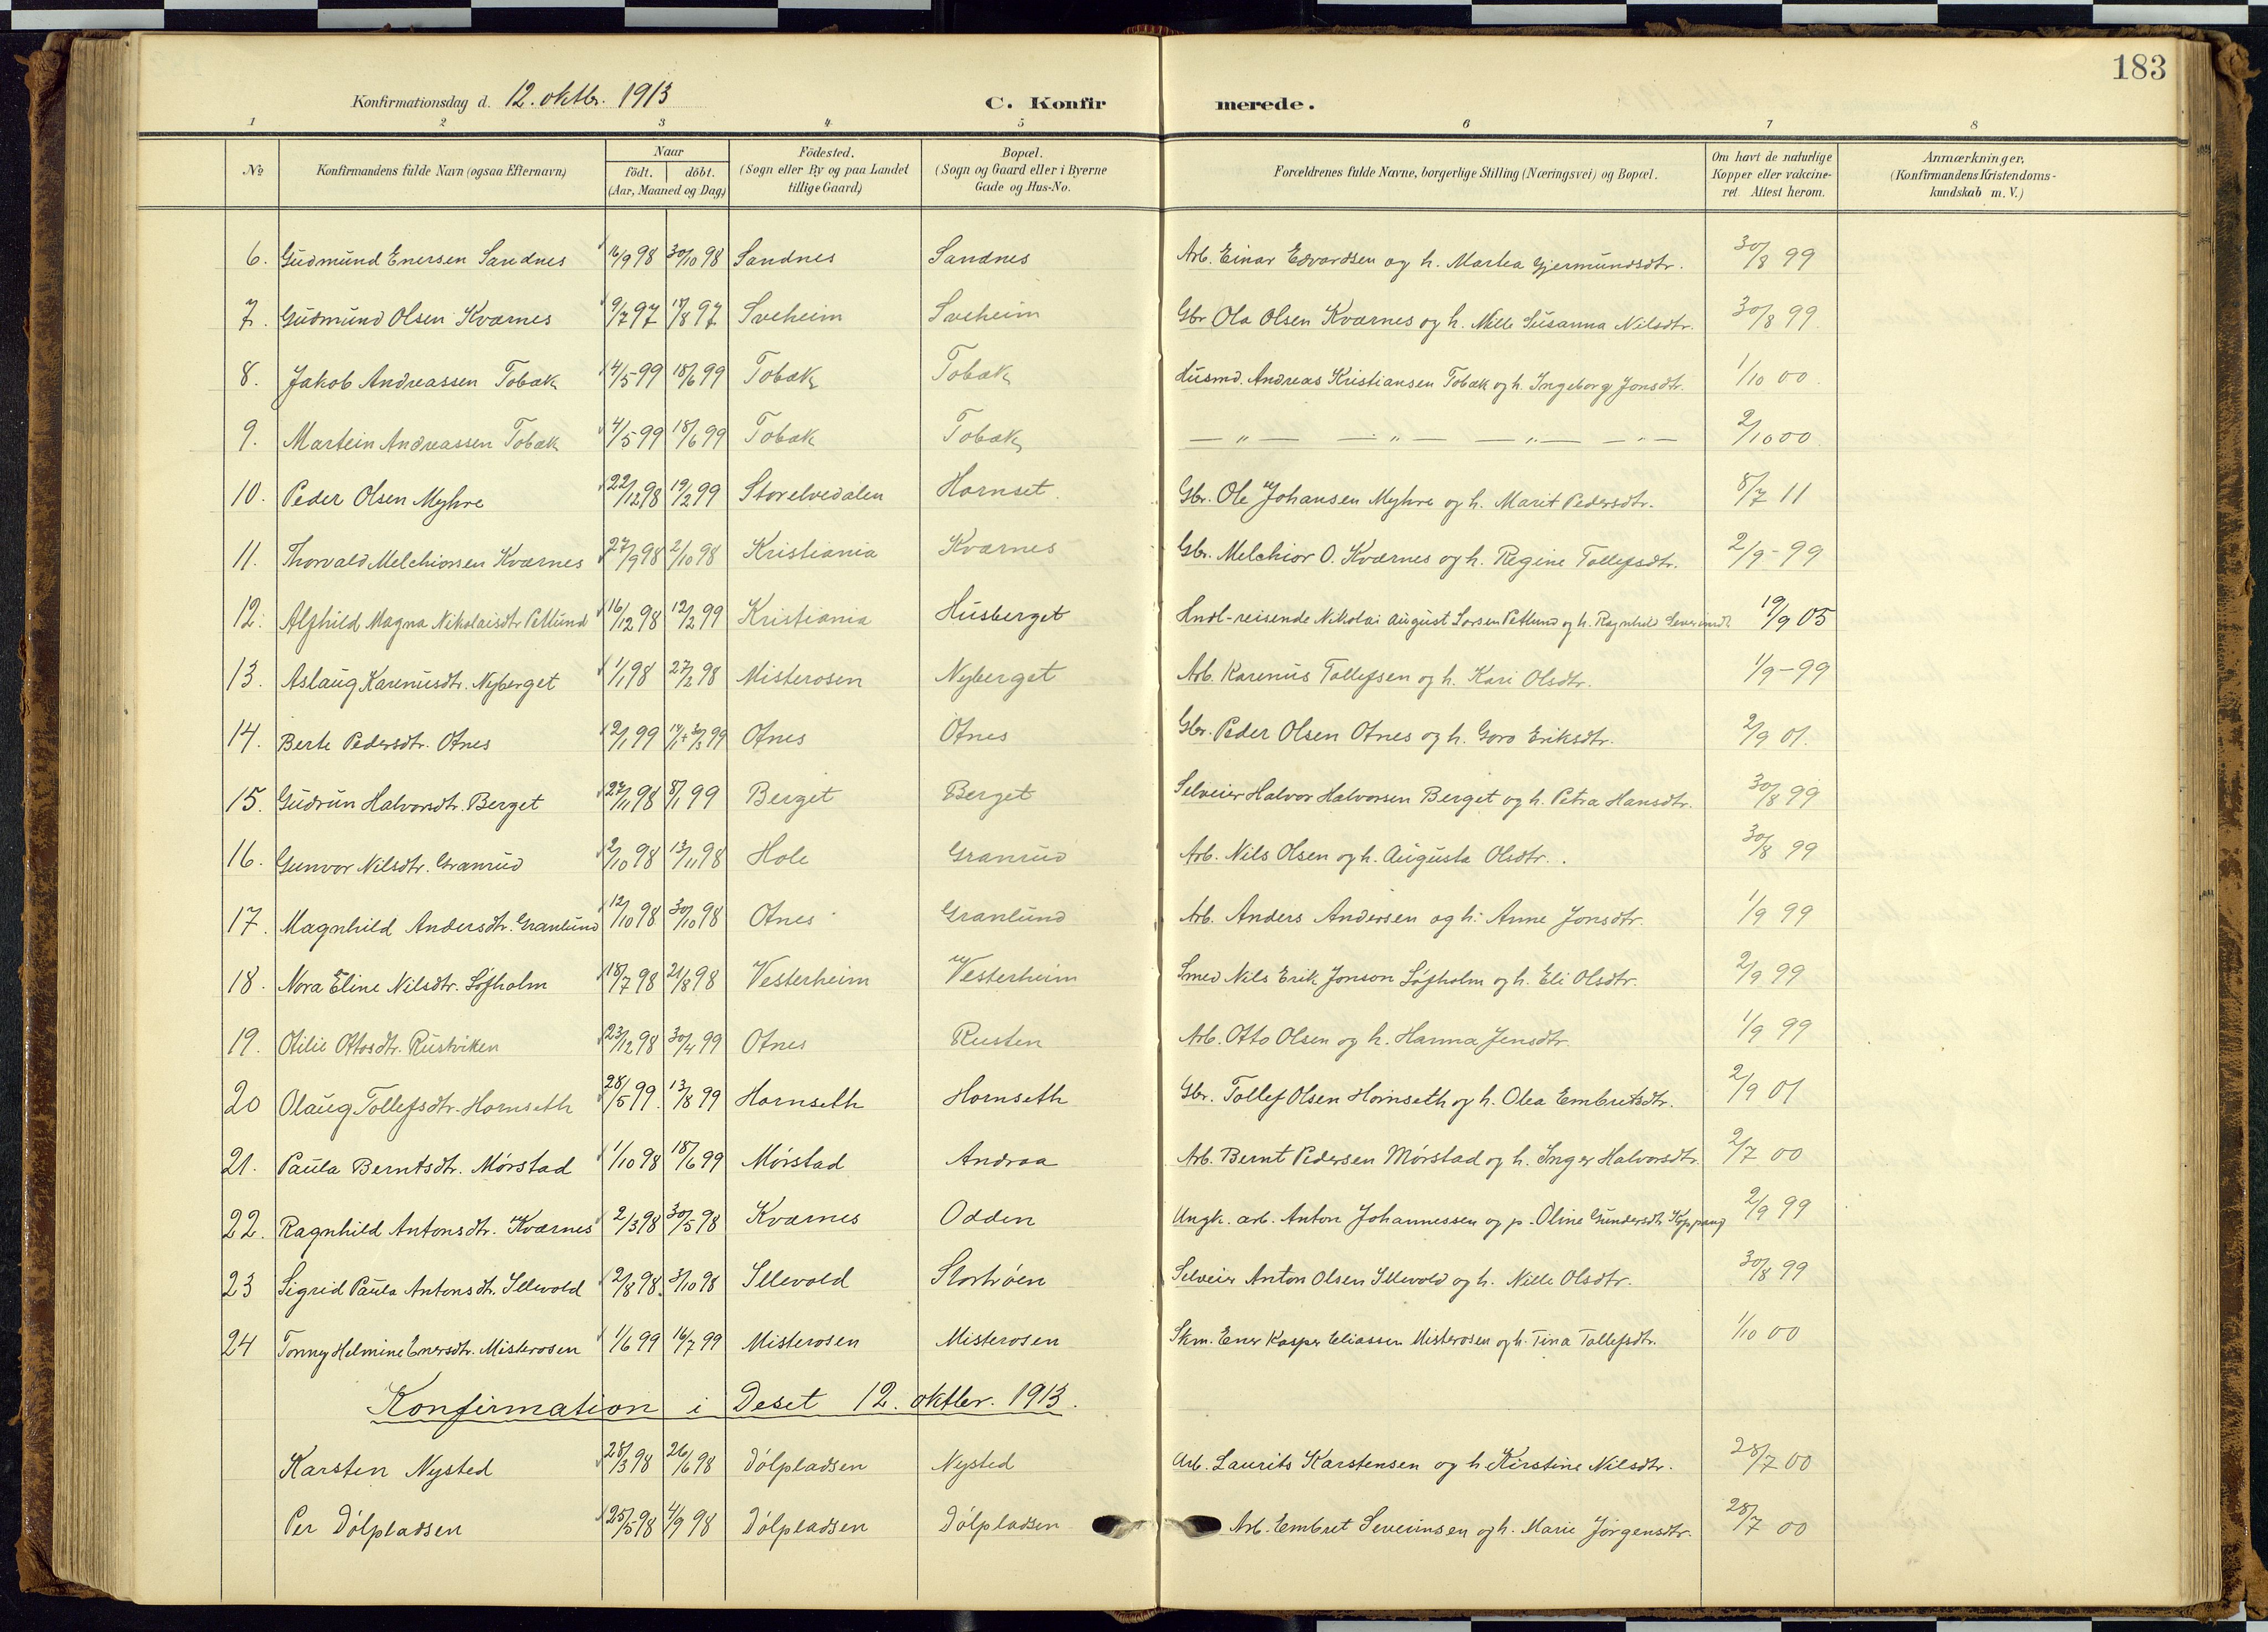 183
Konfirmationsdag d. 12. oktbr. 1913 C. Konfirmerede.
1 2 3 4 5 6 7 8
No Konfirmandens fulde Navn (ogsaa Efternavn) Naar födt. döbt. (Aar, Maaned og Dag) Födested. (Sogn eller By og paa Landet tillige Gaard) Bopæl. (Sogn og Gaard eller i Byerne Gade og Hus-No. Forældrenes fulde Navne, borgerlige Stilling (Næringsvei) og Bopæl. Om havt de naturlige Kopper eller vakcineret Attest herom. Anmærkninger. (Konfirmandens Kristendomskundskab m. V.)
6. Gudmund Enersen Sandnes 16/9 98 30/10 98 Sandnes Sandnes Arb. Einar Edvardsen og h. Martea Gjermundsdtr. 30/8 99
7. Gudmund Olsen Kværnes 9/7 97 /8 97 Sveheim Sveheim Gbr Ola Olsen Kværnes og h. Mille Susanna Nilsdtr. 30/8 99
8. Jakob Andreassen Tobæk 4/5 99 18/6 99 Tobæk Tobæk Husmd. Andreas Kristiansen Tobæk og h. Ingeborg Jonsdtr. 1/10 00.
9. Martein Andreassen Tobæk 4/5 99 18/6 99 Tobæk Tobæk — " — — " — — " — — " — 2/10 00
10. Peder Olsen Myhre 22/12 98 19/2 99 Storelvedalen Hornset Gbr. Ole Johansen Myhre og h. Marit Pedersdtr. 8/7 11
11. Thorvald Melchiorsen Kværnes 27/9 98 2/10 98 Kristiania Kværnes Gbr. Melchior O. Kværnes og h. Regine Tollefsdtr. 2/9-99
12. Alfhild Magna Nikolaisdtr Petlund 16/12 98 12/2 99 Kristiania Husberget Hndl-reisende Nikolai August Larsen Petlund og h. Ragnhild 19/9 05
13. Aslaug Karenusdtr. Nyberget 1/1 98 27/2 98 Misterosen Nyberget Arb. Karenus Tollefsen og h. Kari Olsdtr. 1/9-99
14. Berte Pedersdtr. Otnes 2/1 99 99 Otnes Otnes Gbr. Peder Olsen Otnes og h. Goro Eriksdtr. 2/9 01.
15. Gudrun Halvorsdtr. Berget 27/11 98 8/1 99 Berget Berget Selveier Halvor Halvorsen Berget og h. Petra Hansdtr. 30/8 99
16. Gunvor Nilsdtr. Granrud 2/10 98 13/11 98 Hole Granrud Arb. Nils Olsen og h. Augusta Olsdtr. 30/8 99
17. Magnhild Andersdtr. Granlund 12/10 98 30/10 98 Otnes Granlund Arb. Anders Andersen og h. Anne Jonsdtr. 1/9 99
18. Nora Eline Nilsdtr. Löfholm 18/7 98 21/8 98 Vesterheim Vesterheim Smed Nils Erik Jonson Löfholm og h. Eli Olsdtr. 2/9 99
19. Otilie Ottosdtr. Rustviken 23/12 98 30/4 99 Otnes Rusten Arb. Otto Olsen og h. Hanna Jensdtr. 1/9 99
20 Olaug Tollefsdtr. Hornseth 28/5 99. 13/8 99 Hornseth Hornseth Gbr. Tollef Olsen Hornseth og h. Olea Embretsdtr. 2/9 01
21. Paula Berntsdtr. Mörstad 1/10 98 18/6 99 Mörstad Andraa Arb. Bernt Pedersen Mörstad og h. Inger Halvorsdtr 2/7 00
22. Ragnhild Antonsdtr. Kværnes 2/3 98 30/5 98 Kværnes Odden Ungk. arb. Anton Johannessen og p. Oline Gundersdtr Koppang 2/9 99
23 Sigrid Paula Antonsdt. Illevold 2/8 98. 3/10 98 Illevold Stortröen Selveier Anton Olsen Illevold og h. Nille Olsdtr. 30/8 99
24 Tonny Helmine Enersdtr. Misterosen 1/6 99 16/7 99 Misterosen Misterosen Skm. Ener Kasper Eliassen Misterosen og h. Tina Tollefsdtr. 1/10 00
Konfirmation i Deset 12. oktbr. 1913.
Karsten Nysted 28/3 98 26/6 98 Dölpladsen Nysted Arb. Laurits Karstensen og h Kirstine Nilsdtr. 28/7 00
Per Dölpladsen 25/5 98 4/9 98 Dölpladsen Dölpladsen Arb. Embret Severinsen og h. Marie Jörgensdtr. 28/7 00